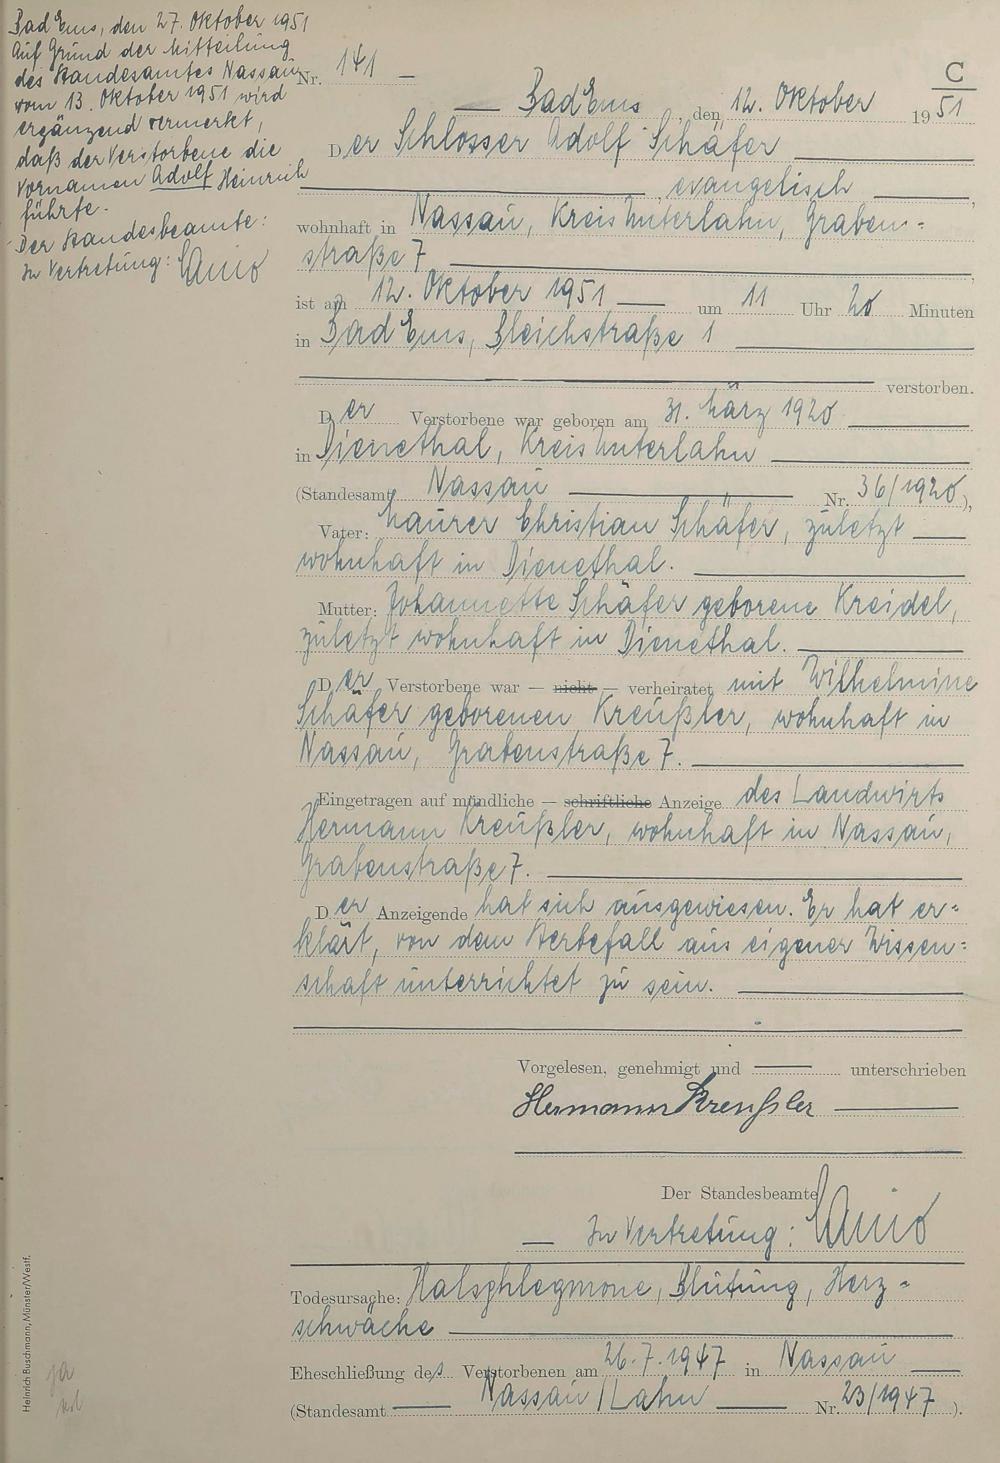 Bad Ems, den 27. Oktober 1951
Auf Grund der Mitteilung
des Standesamtes Nassau
vom 13. Oktober 1951 wird
ergänzend vermerkt,
daß der Verstorbene die
Vornamen Adolf Heinrich
führte.
Der Standesbeamte:
In Vertretung:
C
Nr. 141
Bad Ems, den 12. Oktober 1951
Der Schlosser Adolf Schäfer
, evangelisch ,
wohnhaft in Nassau, Kreis Unterlahn, Graben=
straße 7 ,
ist am 12. Oktober 1951 um 11 Uhr 20 Minuten
in Bad Ems, Bleichstraße 1
verstorben.
Der Verstorbene war geboren am 31. März 1920
in Dienethal, Kreis Unterlahn
(Standesamt Nassau Nr. 36/1920),
Vater: Maurer Christian Schäfer, zuletzt
wohnhaft in Dienethal.
Mutter: Johannette Schäfer geborene Kreidel,
zuletzt wohnhaft in Dienethal.
Der Verstorbene war — nicht — verheiratet mit Wilhelmine
Schäfer geborenen Kreußler, wohnhaft in
Nassau, Grabenstraße 7.
Eingetragen auf mündliche — schriftliche Anzeige des Landwirts
Hermann Kreußler, wohnhaft in Nassau,
Grabenstraße 7.
Der Anzeigende hat sich ausgewiesen. Er hat er=
klärt, von dem Sterbefall aus eigener Wissen=
schaft unterrichtet zu sein.
Vorgelesen, genehmigt und unterschrieben
Hermann Kreußler
Der Standesbeamte
In Vertretung:
Todesursache: Halsphlegmone, Blutung, Herz=
schwäche
Eheschließung des Verstorbenen am 26.7.1947 in Nassau
(Standesamt Nassau/Lahn Nr. 23/1947).
Heinrich Buschmann, Münster/Westf.
ja